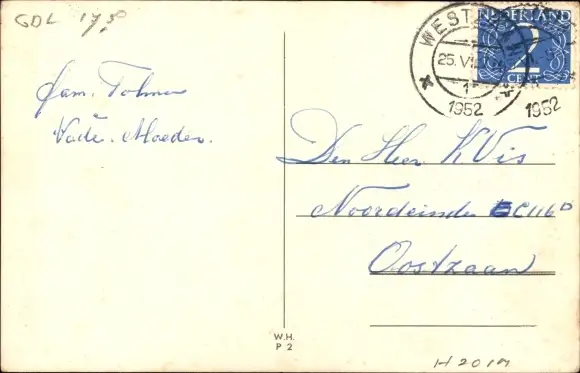 GDL 17,5
Fam. Tolman
Vader. Moeder.
WEST
25.VI
1952
1952
NEDERLAND
2
CENT
Den Heer K Vis
Noordeinde C116D
Oostzaan
W.H.
P 2
H 2017